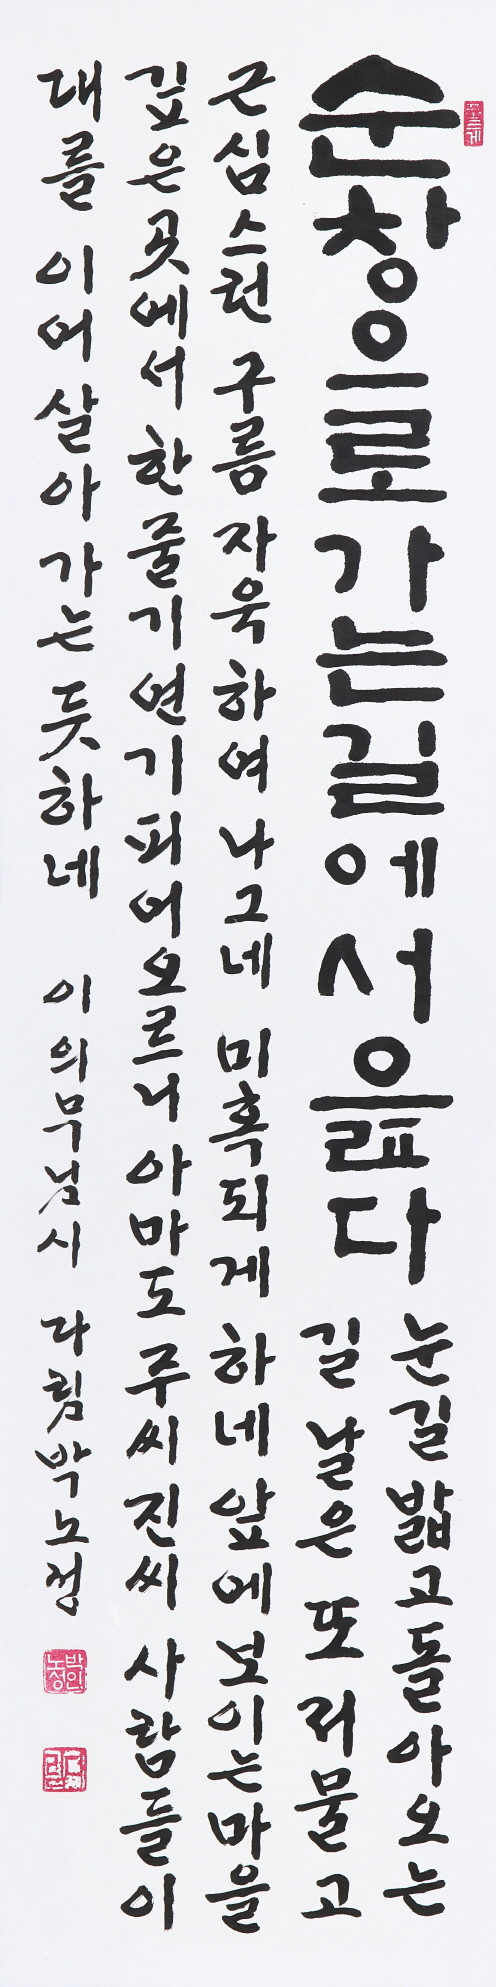 순창으로가는길에서읊다
눈길밟고돌아오는
길 날은 또 저물고
근심스런 구름 자욱하여 나그네 미혹되게 하네 앞에보이는마을
깊은 곳에서 한줄기연기피어오르니 아마도 주씨진씨 사람들이
대를 이어살아가는 듯하네
이의무님시 다림박노정